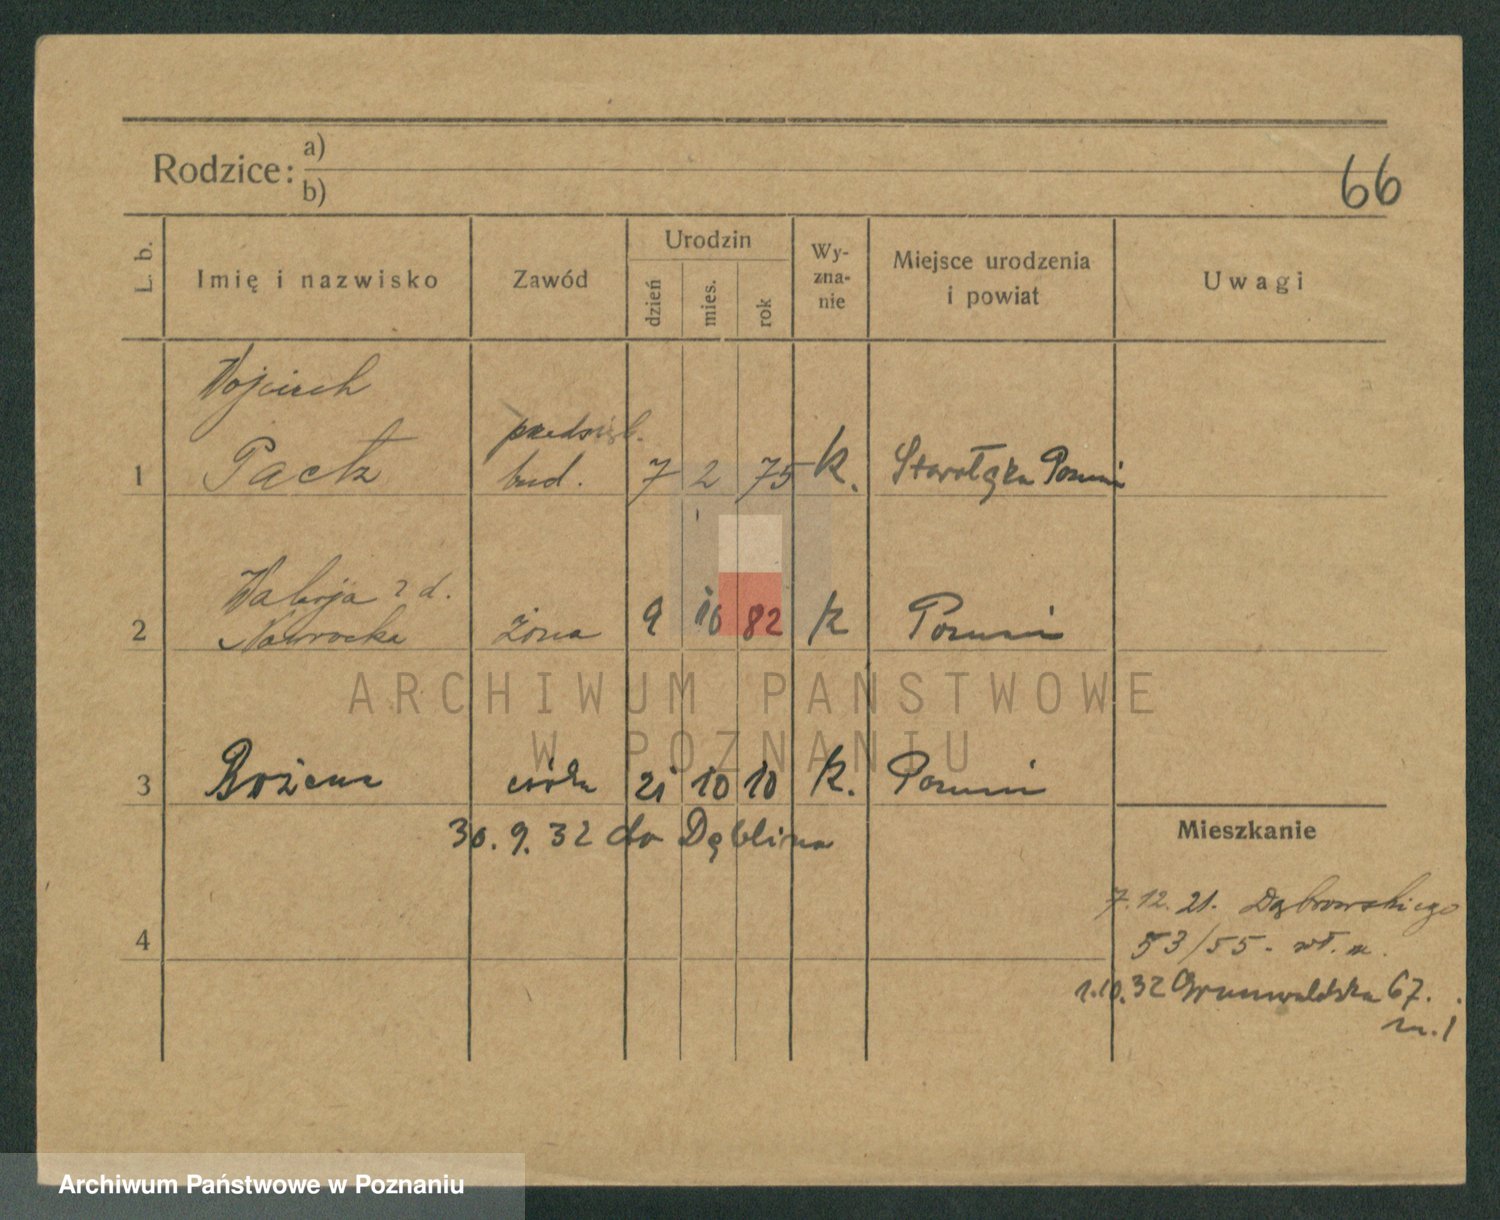 Rodzice: a)
b)
66
L. b.
Imię i nazwisko
Zawód
Urodzin
dzień
mies.
rok
Wy-
zna-
nie
Miejsce urodzenia
i powiat
Uwagi
Wojciech
przedsięb.
1 Pactz bud. 7 2 75 k. Starołęka Poznań
Walerja z d.
2 Nawrocka żona 9 10 82 k Poznań
ARCHIWUM PAŃSTWOWE
W POZNANIU
3 Bożena córka 21 10 10 k. Poznań
30. 9. 32 do Dęblina
Mieszkanie
7. 12. 21. Dąbrowskiego
4
53/55 - wł. m.
1.10.32 Grunwaldzka 67.
m. 1
Archiwum Państwowe w Poznaniu